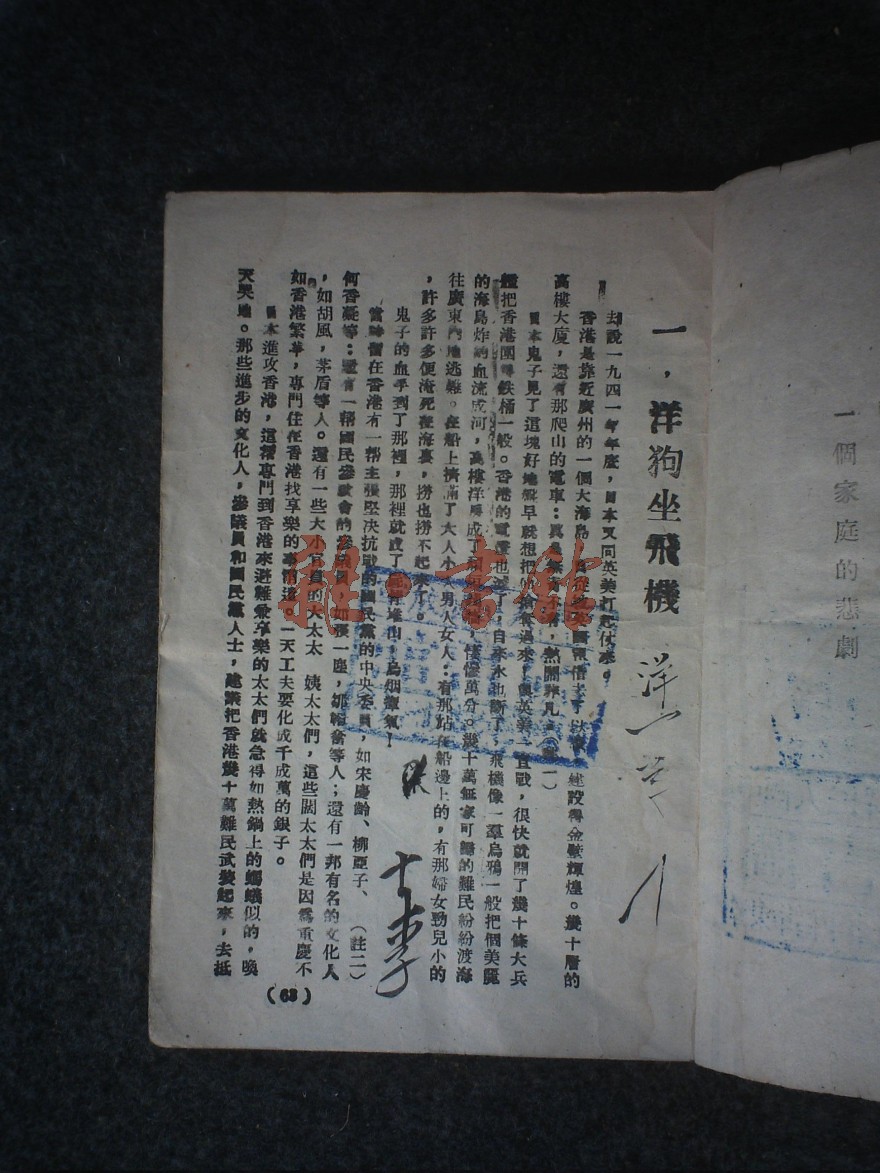 一個家庭的悲劇
一，洋狗坐飛機
却說一九四一年年底，日本又同英美打起仗來。
香港是靠近廣州的一個大海島，建設得金壁輝煌。幾十層的
高樓大廈，還有那爬山的電車：真是熱鬧非凡（註一）
日本鬼子見了這塊好地盤早就想把他搶奪過來，與英美一宣戰，很快就開了幾十條大兵
艦把香港圍得鉄桶一般。香港的電燈也滅了，自來水也斷了，飛機像一羣烏鴉一般把個美麗
的海島炸的血流成河，高樓洋房成了，悽慘萬分。幾十萬無家可歸的難民紛紛渡海
往廣東內地逃難。在船上擠滿了大人小孩男人女人：有那站在船邊上的，有那婦女勁兒小的
，許多許多便淹死在海裏，撈也撈不起來了。
鬼子的血手到了那裡，那裡就成了屍骨堆山，烏烟瘴氣！
當時留在香港有一帮主張堅决抗戰的國民黨的中央委員，如宋慶齡、柳亞子、（註二）
何香凝等：還有一帮國民參政會的參議員，如張一麐，鄒韜奮等人；還有一邦有名的文化人
，如胡風，茅盾等人。還有一些大小官員的大太太 姨太太們，這些闊太太們是因為重慶不
如香港繁華，專門住在香港找享樂的事情這。一天工夫要化成千成萬的銀子。
日本進攻香港，這帮專門到香港來避難兼享樂的太太們就急得如熱鍋上的螞蟻似的，喚
天哭地。那些進步的文化人，參議員和國民黨人士，建議把香港幾十萬難民武裝起來，去抵
（63）
雜·書館